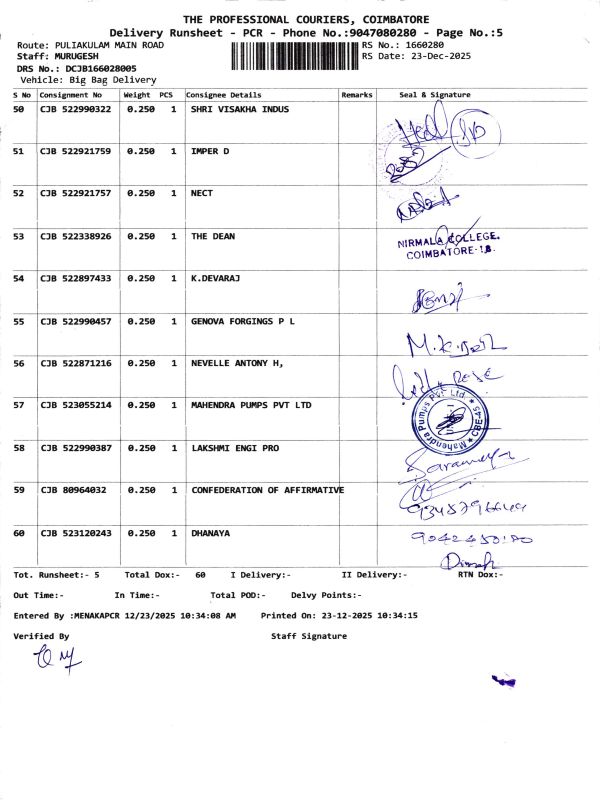 THE PROFESSIONAL COURIERS, COIMBATORE
Delivery Runsheet - PCR - Phone No.:9047080280 - Page No.:5
Route: PULIAKULAM MAIN ROAD RS No.: 1660280
Staff: MURUGESH RS Date: 23-Dec-2025
DRS No.: DCJB166028005
Vehicle: Big Bag Delivery
S No Consignment No Weight PCS Consignee Details Remarks Seal & Signature
50 CJB 522990322 0.250 1 SHRI VISAKHA INDUS
51 CJB 522921759 0.250 1 IMPER D
52 CJB 522921757 0.250 1 NECT
53 CJB 522338926 0.250 1 THE DEAN
NIRMALA COLLEGE.
COIMBATORE-18.
54 CJB 522897433 0.250 1 K.DEVARAJ
55 CJB 522990457 0.250 1 GENOVA FORGINGS P L
56 CJB 522871216 0.250 1 NEVELLE ANTONY H,
57 CJB 523055214 0.250 1 MAHENDRA PUMPS PVT LTD
Mahendra Pumps Pvt Ltd. ★ CBE-45 ★
58 CJB 522990387 0.250 1 LAKSHMI ENGI PRO
59 CJB 80964032 0.250 1 CONFEDERATION OF AFFIRMATIVE
60 CJB 523120243 0.250 1 DHANAYA
Tot. Runsheet:- 5 Total Dox:- 60 I Delivery:- II Delivery:- RTN Dox:-
Out Time:- In Time:- Total POD:- Delvy Points:-
Entered By :MENAKAPCR 12/23/2025 10:34:08 AM Printed On: 23-12-2025 10:34:15
Verified By Staff Signature